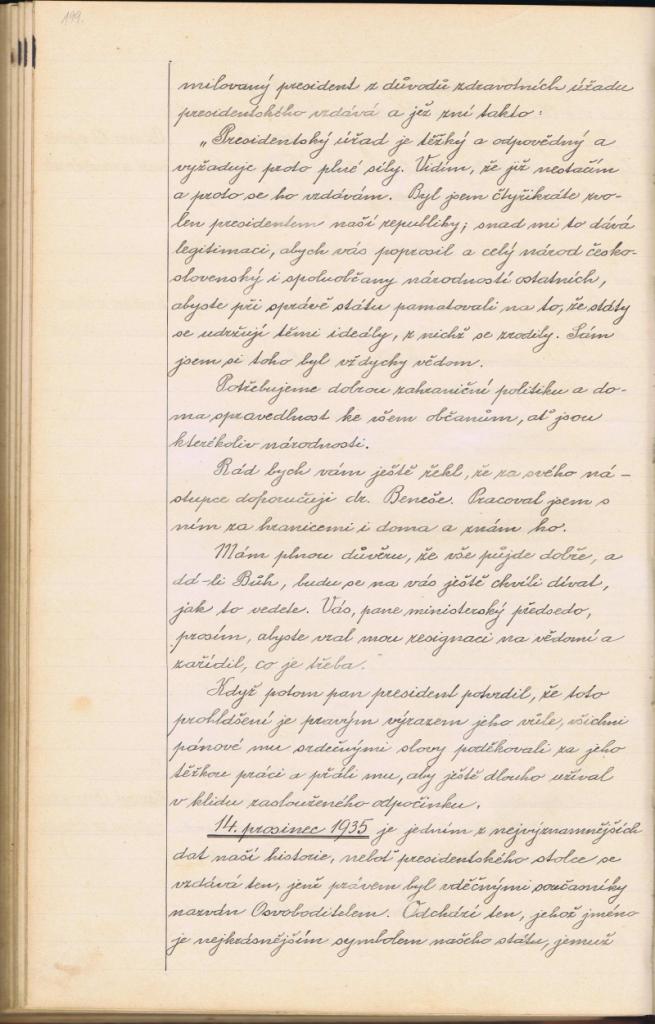 199.
milovaný president z důvodů zdravotních úřadu
presidentského vzdává a jež zní takto:
„Presidentský úřad je těžký a odpovědný a
vyžaduje proto plné síly. Vidím, že již nestačím
a proto se ho vzdávám. Byl jsem čtyřikráte zvo-
len presidentem naší republiky; snad mi to dává
legitimaci, abych vás poprosil a celý národ česko-
slovenský i spoluobčany národností ostatních,
abyste při správě státu pamatovali na to, že státy
se udržují těmi ideály, z nichž se zrodily. Sám
jsem si toho byl vždycky vědom.
Potřebujeme dobrou zahraniční politiku a do-
ma spravedlnost ke všem občanům, ať jsou
kterékoliv národnosti.
Rád bych vám ještě řekl, že za svého ná-
stupce doporučuji dr. Beneše. Pracoval jsem s
ním za hranicemi i doma a znám ho.
Mám plnou důvěru, že vše půjde dobře, a
dá-li Bůh, budu se na vás ještě chvíli dívat,
jak to vedete. Vás, pane ministerský předsedo,
prosím, abyste vzal mou resignaci na vědomí a
zařídil, co je třeba.
Když potom pan president potvrdil, že toto
prohlášení je pravým výrazem jeho vůle, všichni
pánové mu srdečnými slovy poděkovali za jeho
těžkou práci a přáli mu, aby ještě dlouho užíval
v klidu zaslouženého odpočinku.
14. prosinec 1935 je jedním z nejvýznamnějších
dat naší historie, neboť presidentského stolce se
vzdává ten, jenž právem byl vděčnými současníky
nazván Osvoboditelem. Odchází ten, jehož jméno
je nejkrásnějším symbolem našeho státu, jemuž